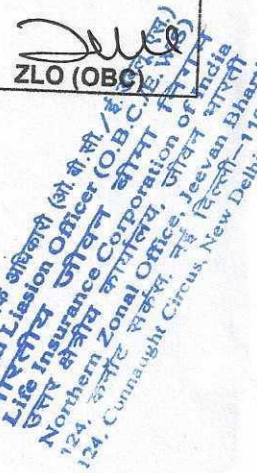 ZLO (OBC)
अधिकारी (ओ. बी. सी. / ई.
Liasion Officer (O.B.C./E.
भारतीय जीवन बीमा निगम
Life Insurance Corporation of India
उत्तर क्षेत्रीय कार्यालय, जीवन भारती
Northern Zonal Office, Jeevan Bharti
124, कनॉट सर्कस, नई दिल्ली-1
124, Connaught Circus, New Delhi